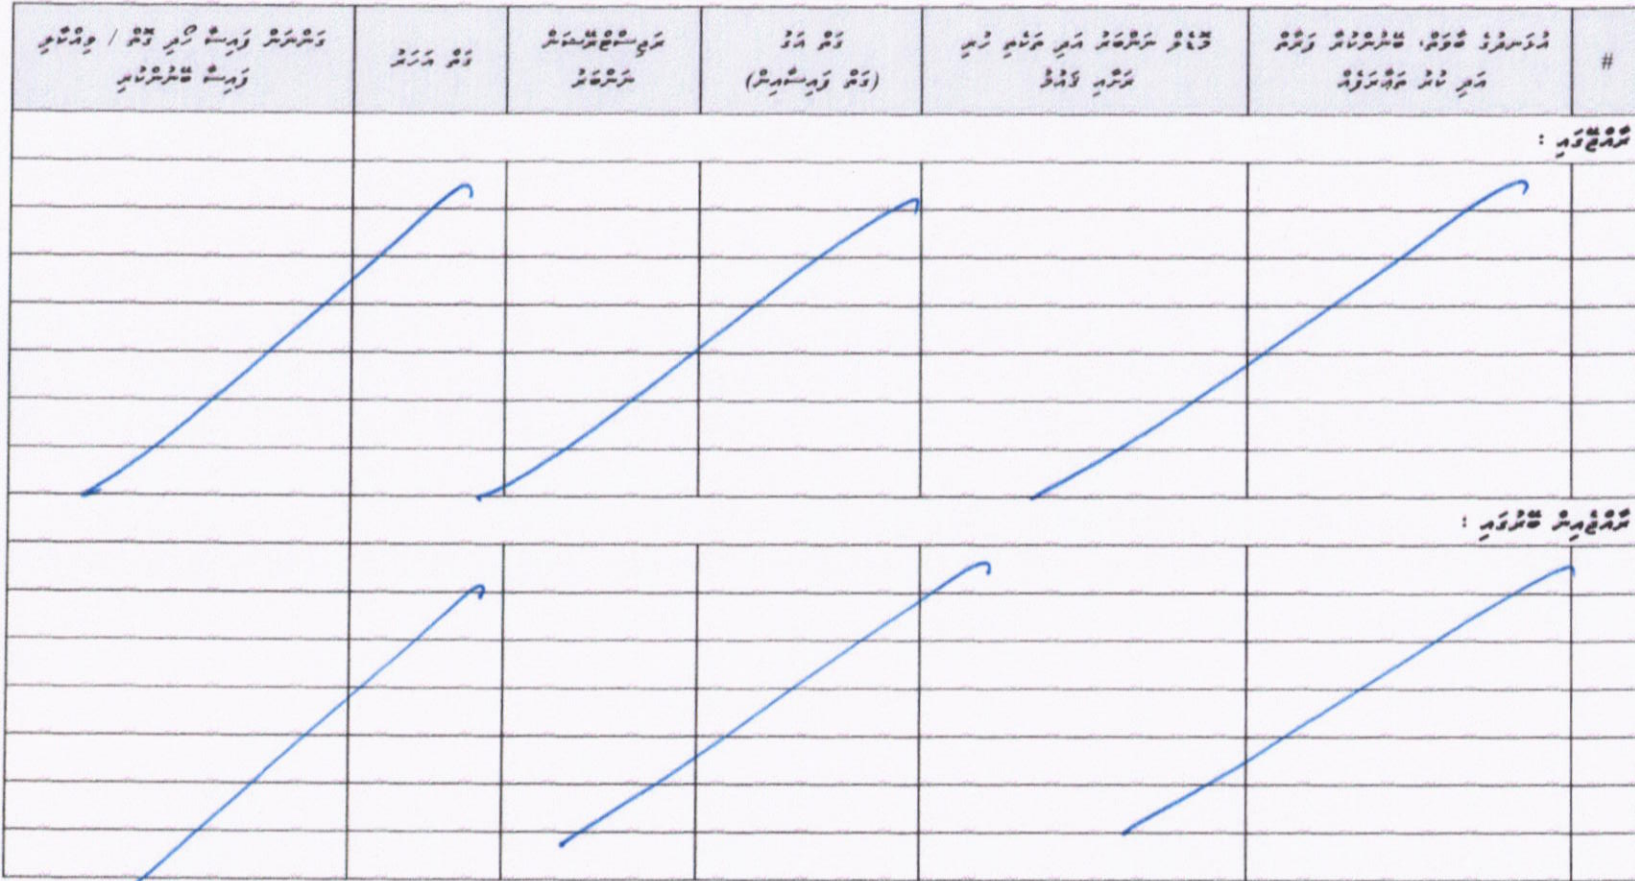 #
އުޅަނދުގެ ބާވަތް، ބޭނުންކުރާ ފަރާތް
އަދި ކުރު ތަޢާރަފެއް
މޮޑެލް ނަންބަރު އަދި ތަކެތި ހުރި
ރަށާއި ޤައުމު
ގަތް އަގު
(ގަތް ފައިސާއިން)
ރަޖިސްޓްރޭޝަން
ނަންބަރު
ގަތް އަހަރު
ގަންނަން ފައިސާ ހޯދި ގޮތް / ވިއްކާލި
ފައިސާ ބޭނުންކުރި
ރާއްޖޭގައި :
ރާއްޖެއިން ބޭރުގައި :